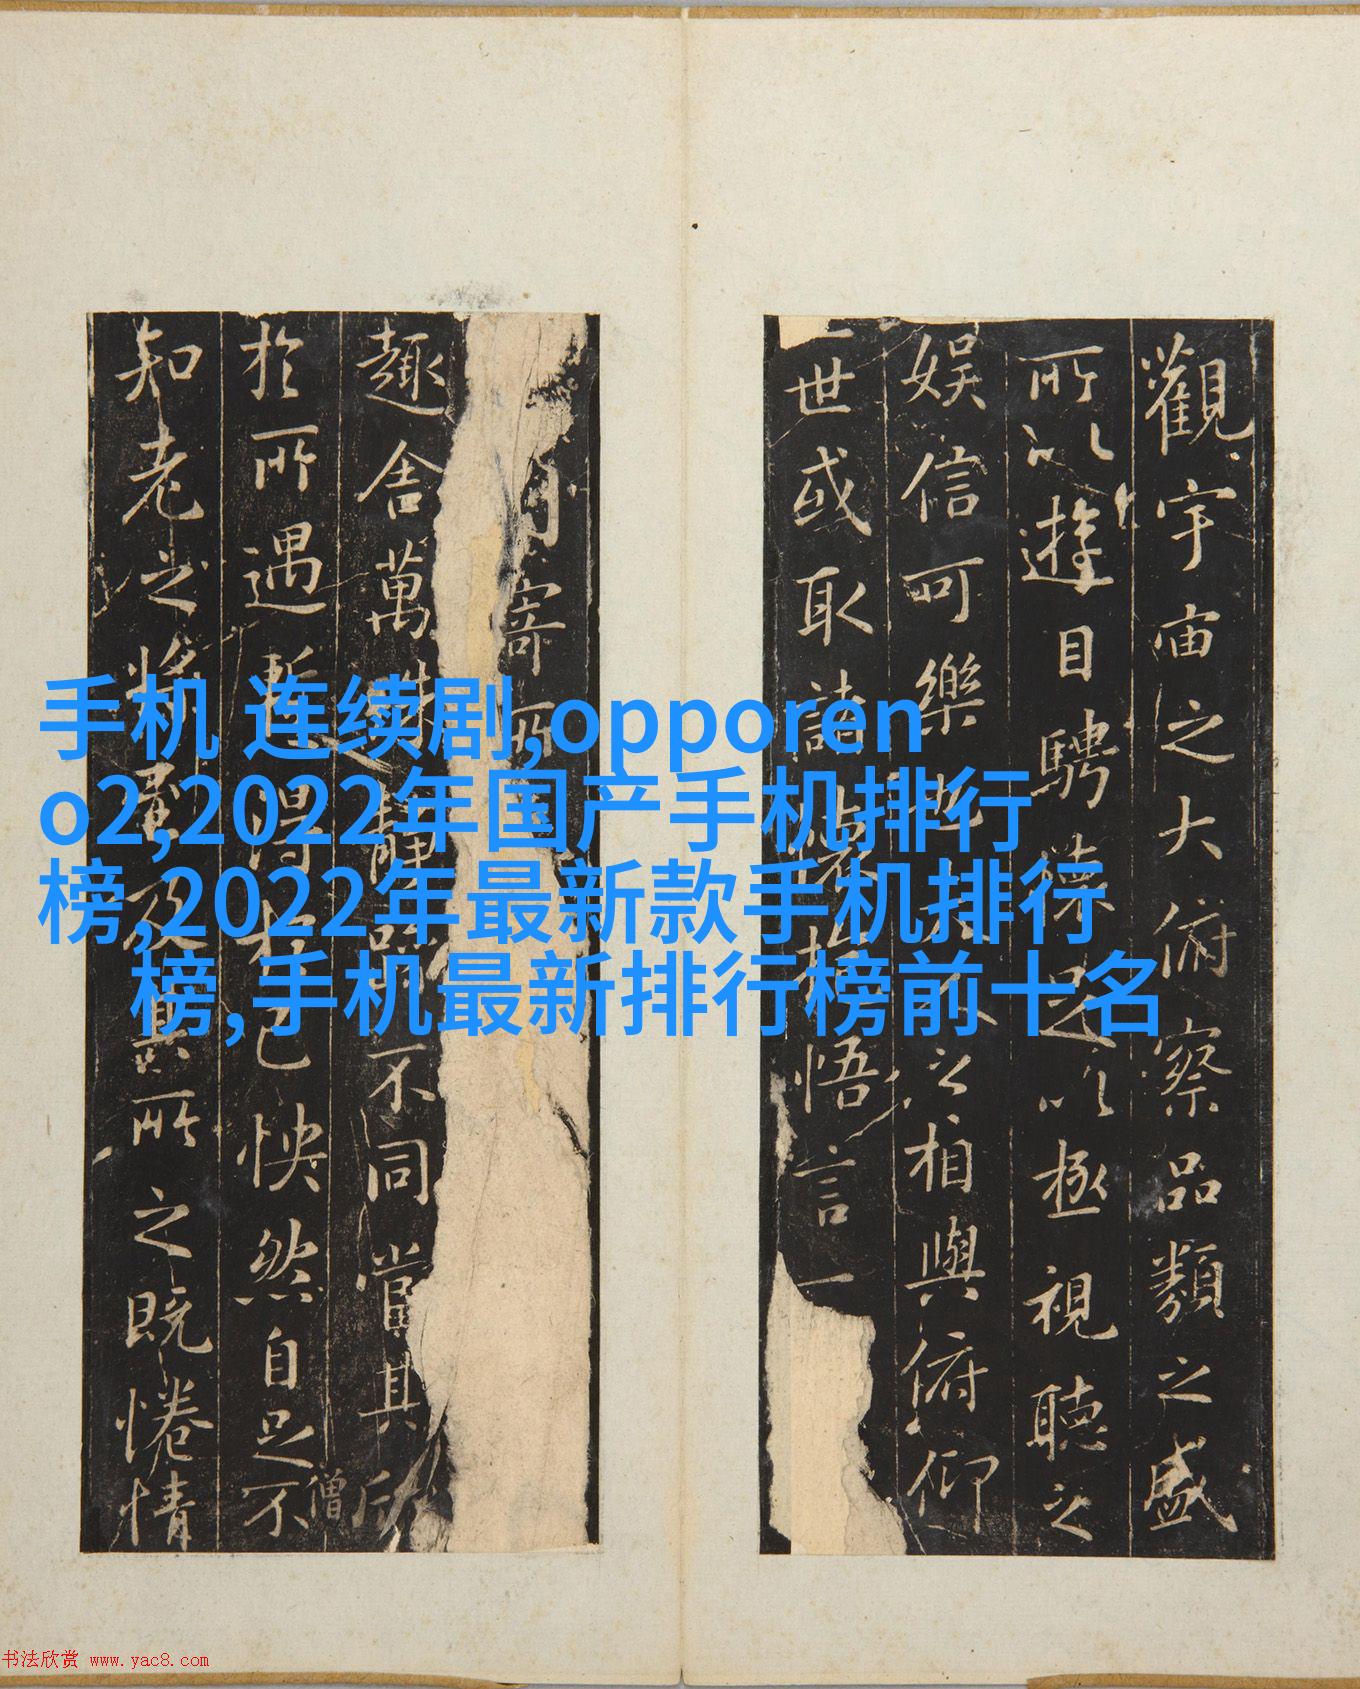 觀宇宙之大俯察品類之盛
所以遊目騁懷足以極視聽之
娛信可樂也夫人之相與俯仰
一世或取諸懷抱悟言一
寄所
趣舍萬殊靜躁不同當其欣
僧
於所遇暫得於己怏然自足不
知老之將至及其所之既惓情
手机 连续剧,opporen
o2,2022年国产手机排行
榜,2022年最新款手机排行
榜,手机最新排行榜前十名
书法欣赏 www.yac8.com